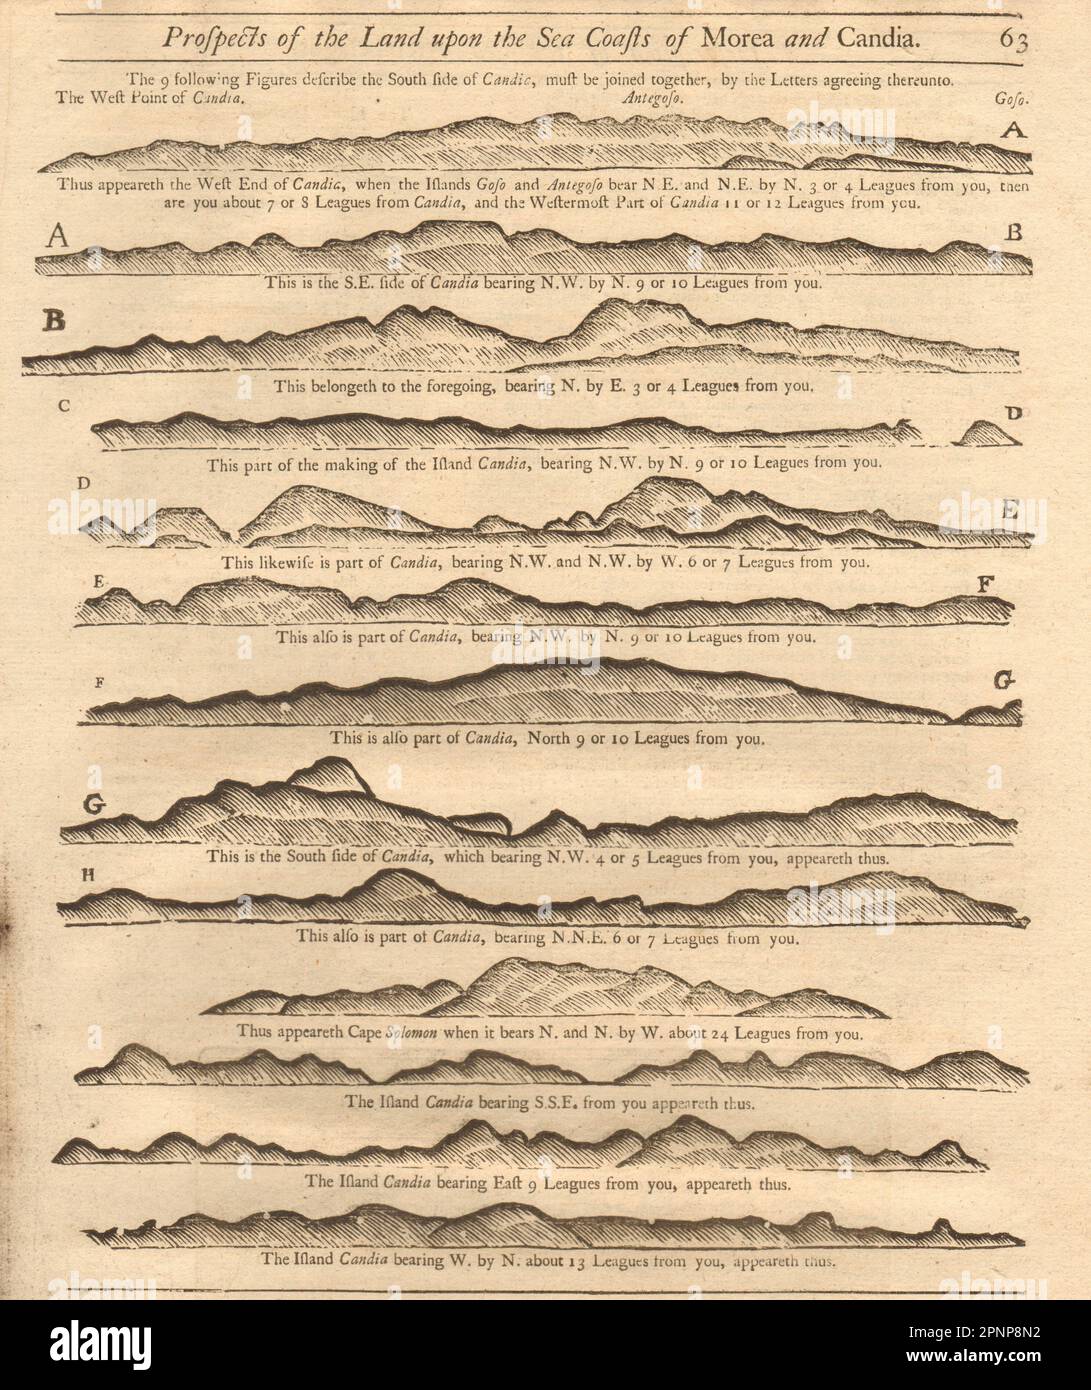 Proſpects of the Land upon the Sea Coaſts of Morea and Candia. 63
The 9 following Figures deſcribe the South ſide of Candie, muſt be joined together, by the Letters agreeing thereunto.
The Weſt Point of Candia. Antegoſo. Goſo.
A
Thus appeareth the Weſt End of Candia, when the Iſlands Goſo and Antegoſo bear N.E. and N.E. by N. 3 or 4 Leagues from you, then
are you about 7 or 8 Leagues from Candia, and the Weſtermoſt Part of Candia 11 or 12 Leagues from you.
A B
This is the S.E. ſide of Candia bearing N.W. by N. 9 or 10 Leagues from you.
B
This belongeth to the foregoing, bearing N. by E. 3 or 4 Leagues from you.
C D
This part of the making of the Iſland Candia, bearing N.W. by N. 9 or 10 Leagues from you.
D E
This likewiſe is part of Candia, bearing N.W. and N.W. by W. 6 or 7 Leagues from you.
E F
This alſo is part of Candia, bearing N.W. by N. 9 or 10 Leagues from you.
F G
This is alſo part of Candia, North 9 or 10 Leagues from you.
G
This is the South ſide of Candia, which bearing N.W. 4 or 5 Leagues from you, appeareth thus.
H
This alſo is part of Candia, bearing N.N.E. 6 or 7 Leagues from you.
Thus appeareth Cape Solomon when it bears N. and N. by W. about 24 Leagues from you.
The Iſland Candia bearing S.S.E. from you appeareth thus.
The Iſland Candia bearing Eaſt 9 Leagues from you, appeareth thus.
The Iſland Candia bearing W. by N. about 13 Leagues from you, appeareth thus.
alamy
alamy
Image ID: 2PNP8N2
www.alamy.com